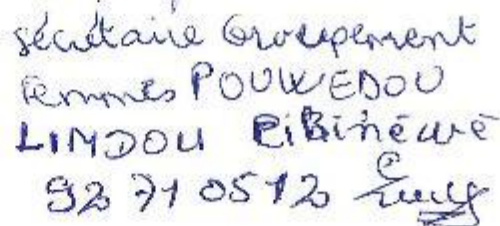 sécrétaire Groupement
Femmes POUWEDOU
LIMDOU Pibinéwè
92 71 05 12